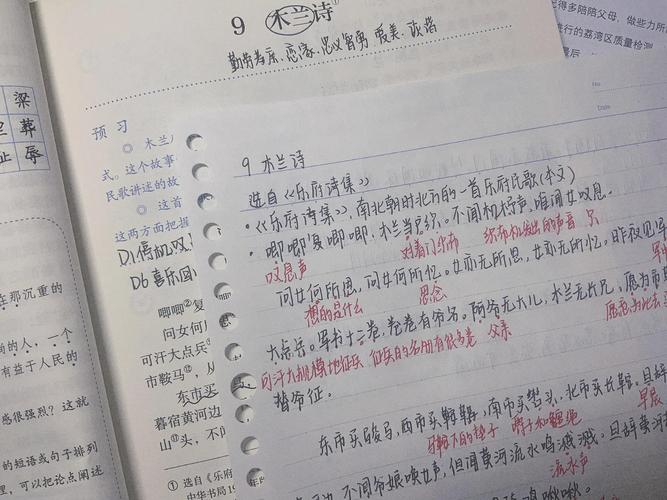 9 木兰诗①
勤劳孝亲、恋家、忠义智勇 爱美、诙谐
预习
◎ 木兰
式。这个故事
民歌讲述的故
◎ 这首
这两方面把握
D1停机叹
D6 喜乐回
唧唧②复
问女何
可汗大点兵
市鞍马⑫，从
东市买
暮宿黄河边
山⑬头，不
① 选自《乐府
中华书局19
9 木兰诗
选自《乐府诗集》
·《乐府诗集》，南北朝时北方的一首乐府民歌(本文)
·唧唧复唧唧，木兰当户织。不闻机杼声，唯闻女叹息。
叹息声 对着门织布 织布机发出的声音 只
问女何所思，问女何所忆。女亦无所思，女亦无所忆。昨夜见军
想的是什么 思念
大点兵。军书十二卷，卷卷有爷名。阿爷无大儿，木兰无长兄，愿为市
可汗大规模地征兵 征兵的名册有很多卷 父亲 愿意为此去
替爷征。
东市买骏马，西市买鞍鞯，南市买辔头，北市买长鞭。旦辞
马鞍下的垫子 嚼子和缰绳 早晨
不闻爷娘唤女声，但闻黄河流水鸣溅溅。旦辞黄河
流水声
鸣啾啾。
梁
葬
止 辱
在那沉重的
的人，一个
有益于人民的
感很强烈？这就
的短语或句子排列
，可以把论点阐述
得多陪陪父母，做些力所
进行的荔湾区质量检测
最后
No
Date